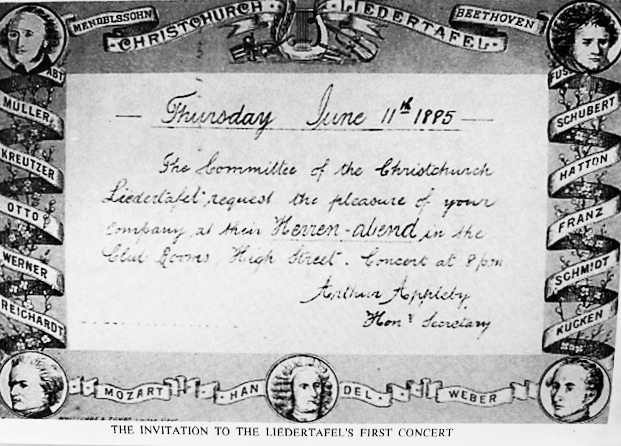 MENDELSSOHN
CHRISTCHURCH LIEDERTAFEL
BEETHOVEN
ABT
MULLER
KREUTZER
OTTO
WERNER
REICHARDT
Thursday June 11th 1885
The Committee of the Christchurch
Liedertafel, request the pleasure of your
company, at their Herren-abend, in the
Club Rooms, High Street. Concert at 8 p.m.
Arthur Appleby
Hon Secretary
SCHUBERT
HATTON
FRANZ
SCHMIDT
KUCKEN
MOZART HAN DEL WEBER
THE INVITATION TO THE LIEDERTAFEL'S FIRST CONCERT